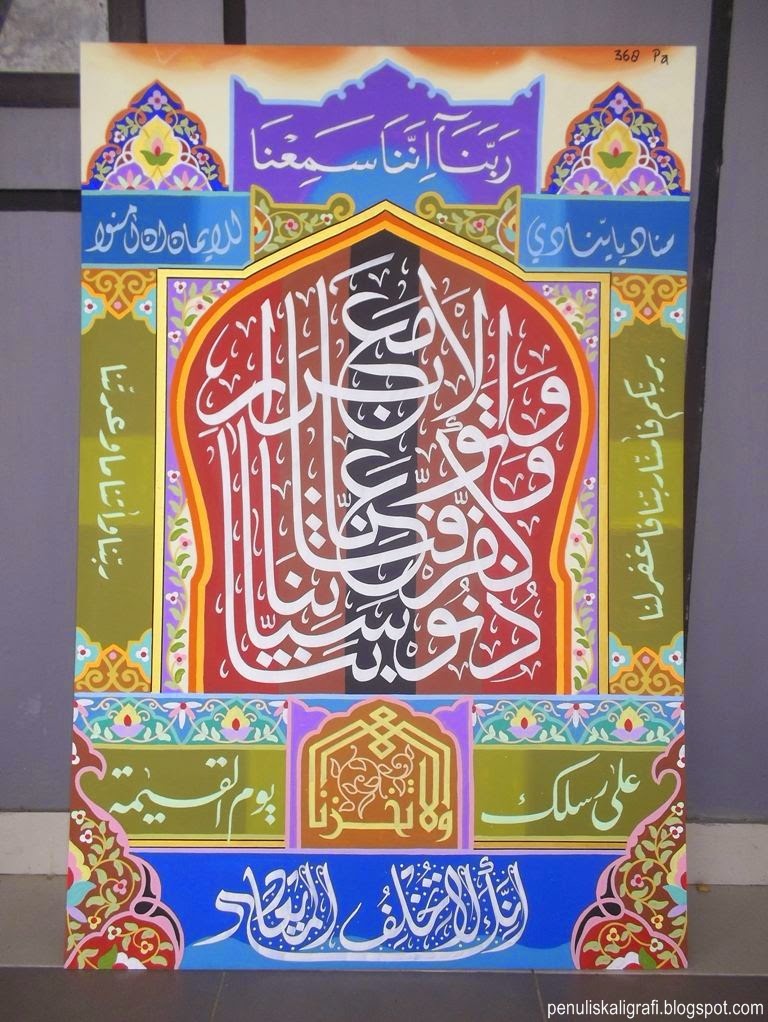 368 Pa
رَبَّنَآ اِنَّنَا سَمِعْنَا
مناديا ينادي
للايمان ان اٰمنوا
بربكم فاٰمنا ربنا فاغفر لنا
ذنوبنا وكفر عنا سياتنا وتوفنا مع الابرار
ربنا واٰتنا ما وعدتنا
على رسلك
ولا تخزنا
يوم القيمة
انك لا تخلف الميعاد
penuliskaligrafi.blogspot.com